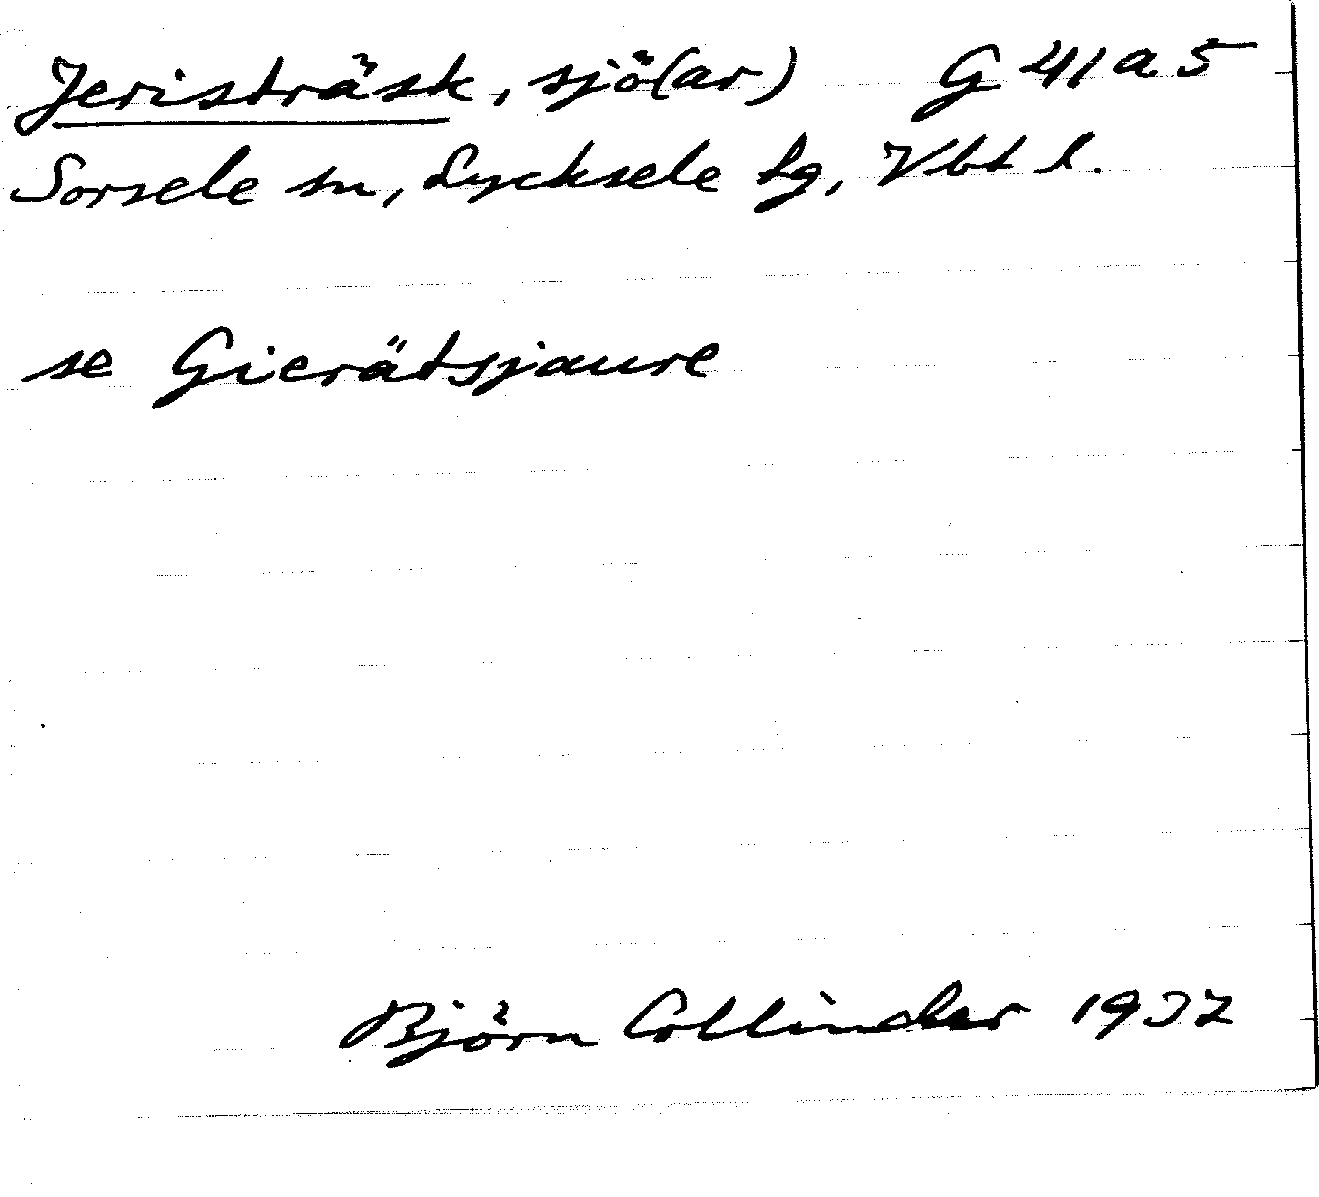 Jeristräsk, sjö(ar) G 41 a 5
Sorsele sn, Lycksele lg, Vbt l.
se Gierätsjaure
Björn Collinder 1937